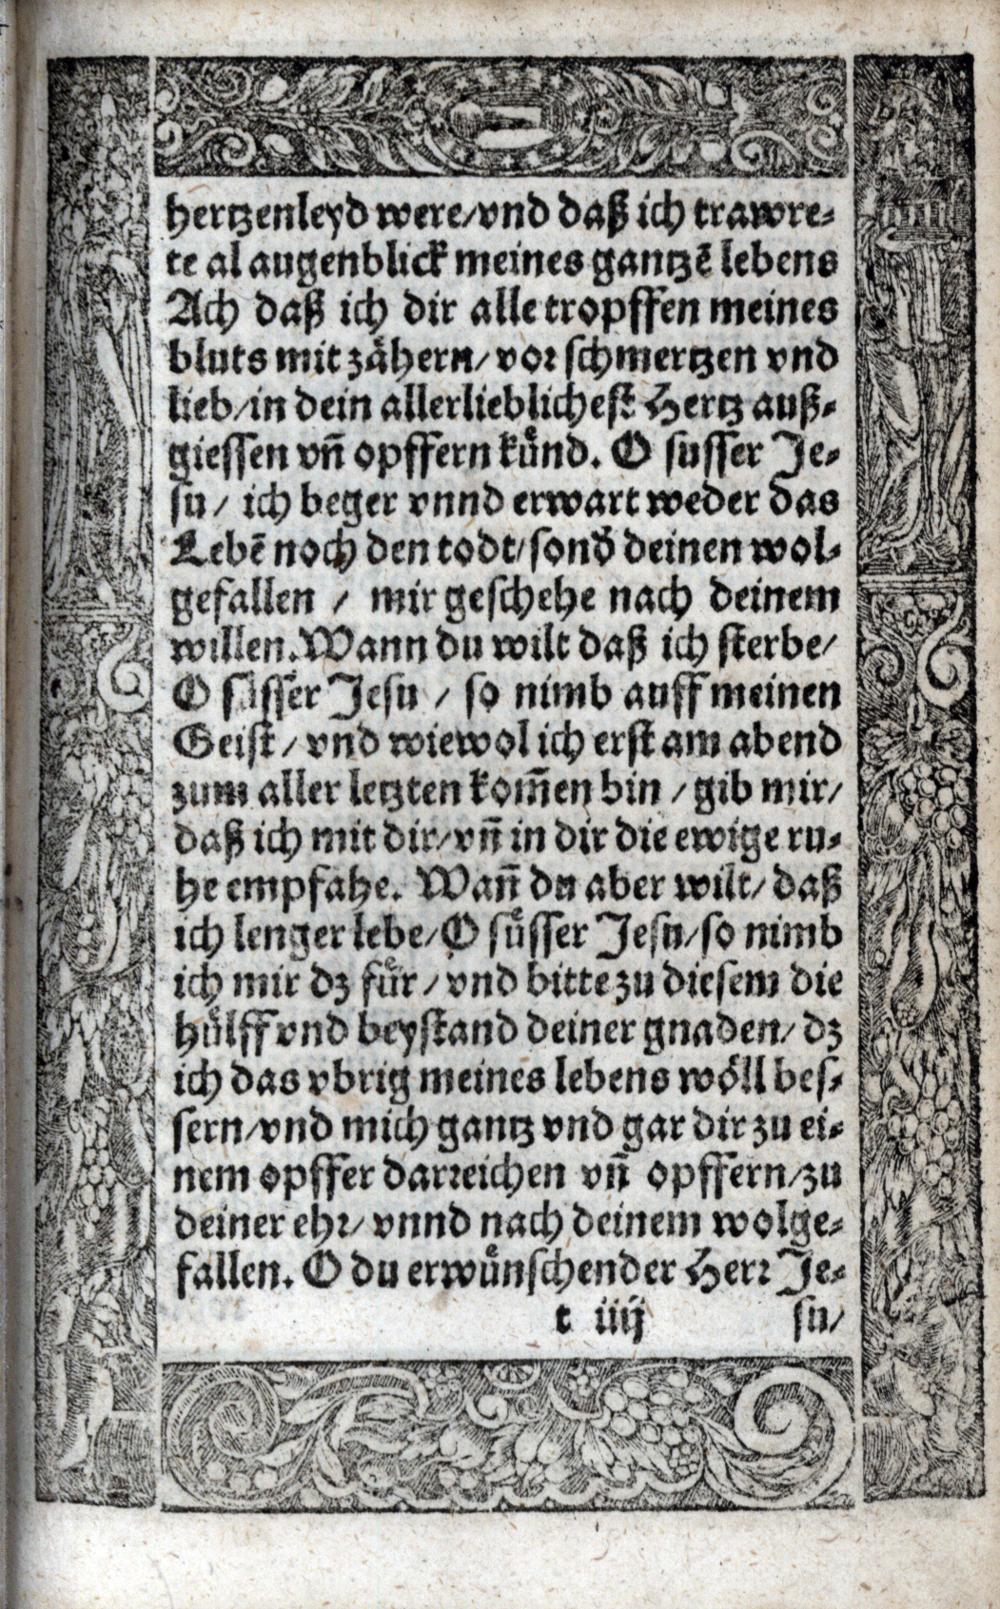 hertzenleyd were/vnd daß ich trawre⸗
te al augenblick meines gantzē lebens
Ach daß ich dir alle tropffen meines
bluts mit zåhern/ vor schmertzen vnd
lieb/in dein allerlieblichest Hertz auß⸗
giessen vñ opffern kůnd. O susser Je⸗
su/ ich beger vnnd erwart weder das
Lebē noch den todt/sonđ deinen wol⸗
gefallen / mir geschehe nach deinem
willen. Wann du wilt daß ich sterbe/
O süsser Jesu / so nimb auff meinen
Geist/ vnd wiewol ich erst am abend
zum aller letzten kom̄en bin / gib mir/
daß ich mit dir/vñ in dir die ewige ru⸗
he empfahe. Wañ du aber wilt/ daß
ich lenger lebe/O sůsser Jesu/so nimb
ich mir dz fůr/ vnd bitte zu diesem die
hůlff vnd beystand deiner gnaden/ dz
ich das vbrig meines lebens wöll bes⸗
sern/vnd mich gantz vnd gar dir zu ei⸗
nem opffer darreichen vñ opffern/zu
deiner ehr/ vnnd nach deinem wolge⸗
fallen. O du erwůnschender Herr Je⸗
t iiij su/